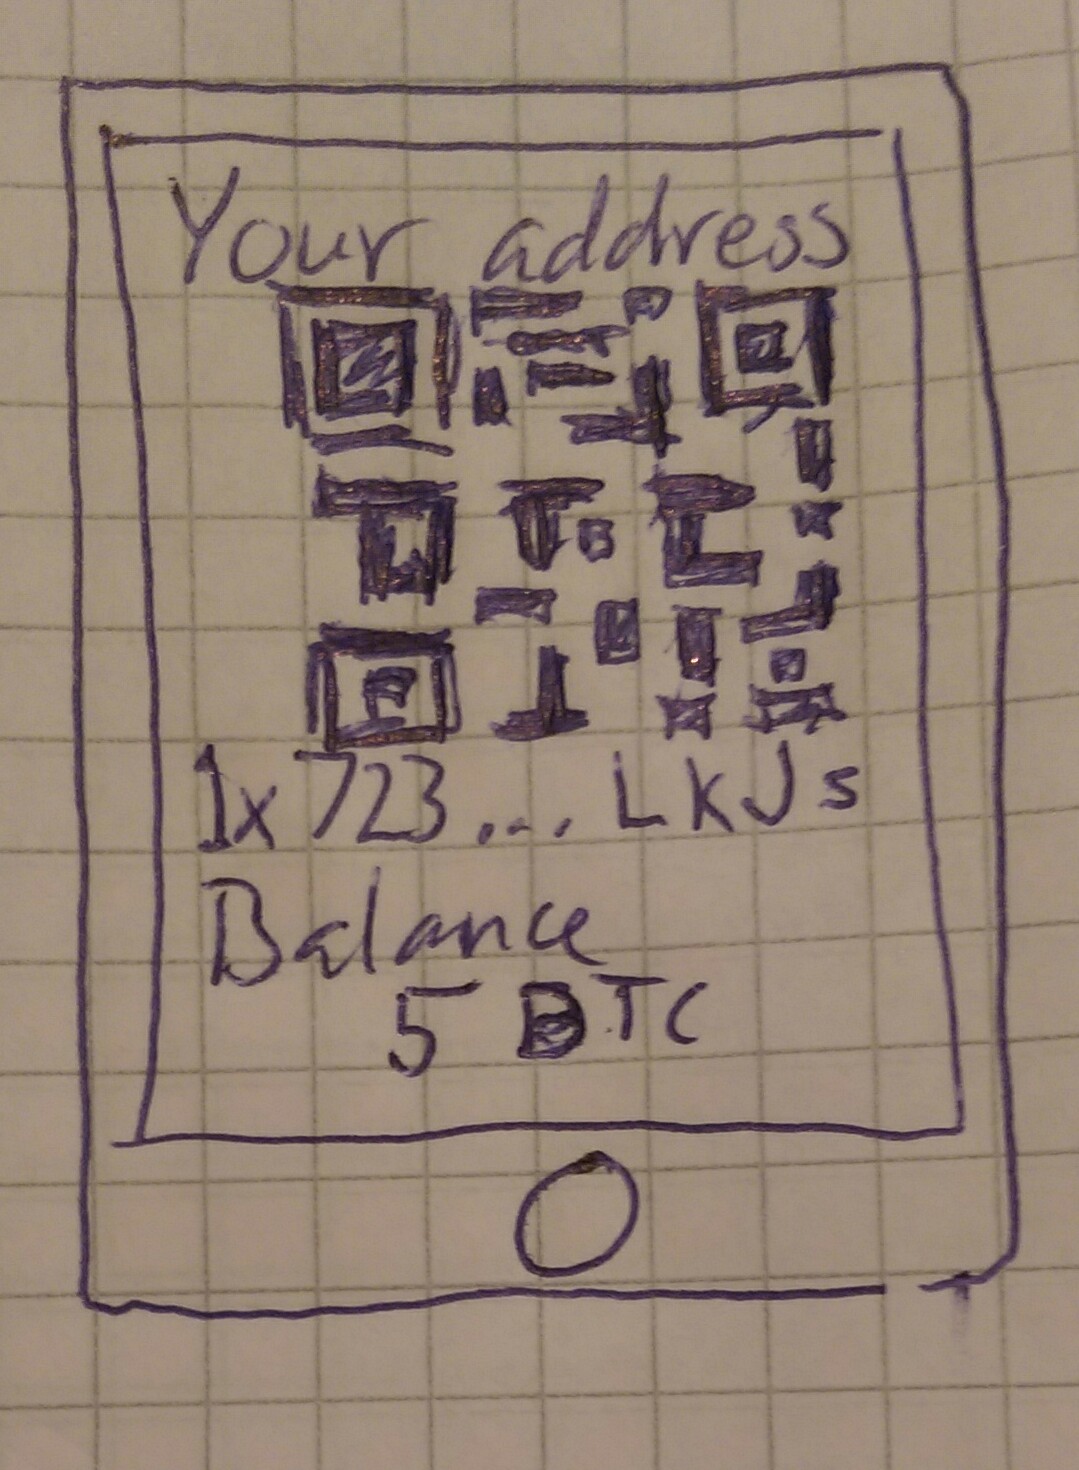 Your address
1x723... LKJs
Balance
5 BTC